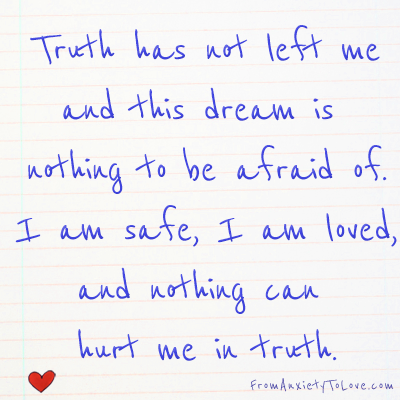 Truth has not left me
and this dream is
nothing to be afraid of.
I am safe, I am loved,
and nothing can
hurt me in truth.
FromAnxietyToLove.com